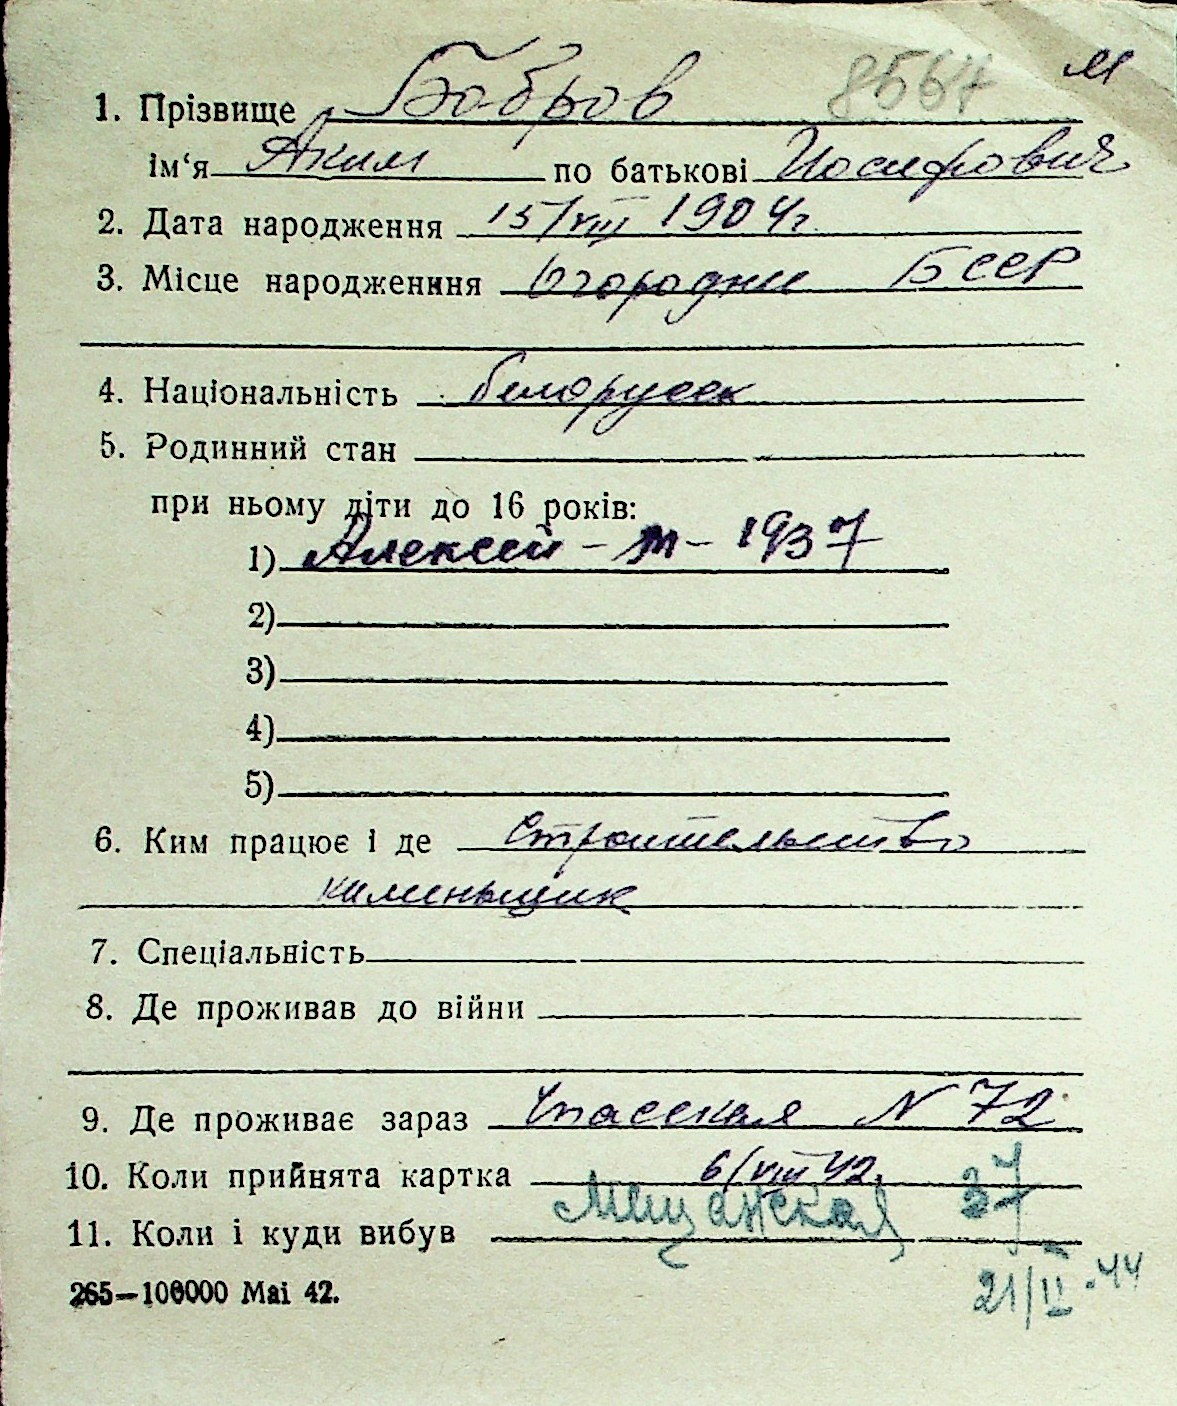 8567 м
1. Прізвище Бобров
ім‘я Аким по батькові Иосифович
2. Дата народження 15/VIII 1904г.
3. Місце народженння Огородни БССР
4. Національність белорусск
5. Родинний стан
при ньому діти до 16 років:
1) Алексей - м - 1937
2)
3)
4)
5)
6. Ким працює і де строительство
каменьщик
7. Спеціальність
8. Де проживав до війни
9. Де проживає зараз Спасская N 72
10. Коли прийнята картка 6/VIII 42.
11. Коли і куди вибув Мещанская 37
21/II-44
265—100000 Mai 42.